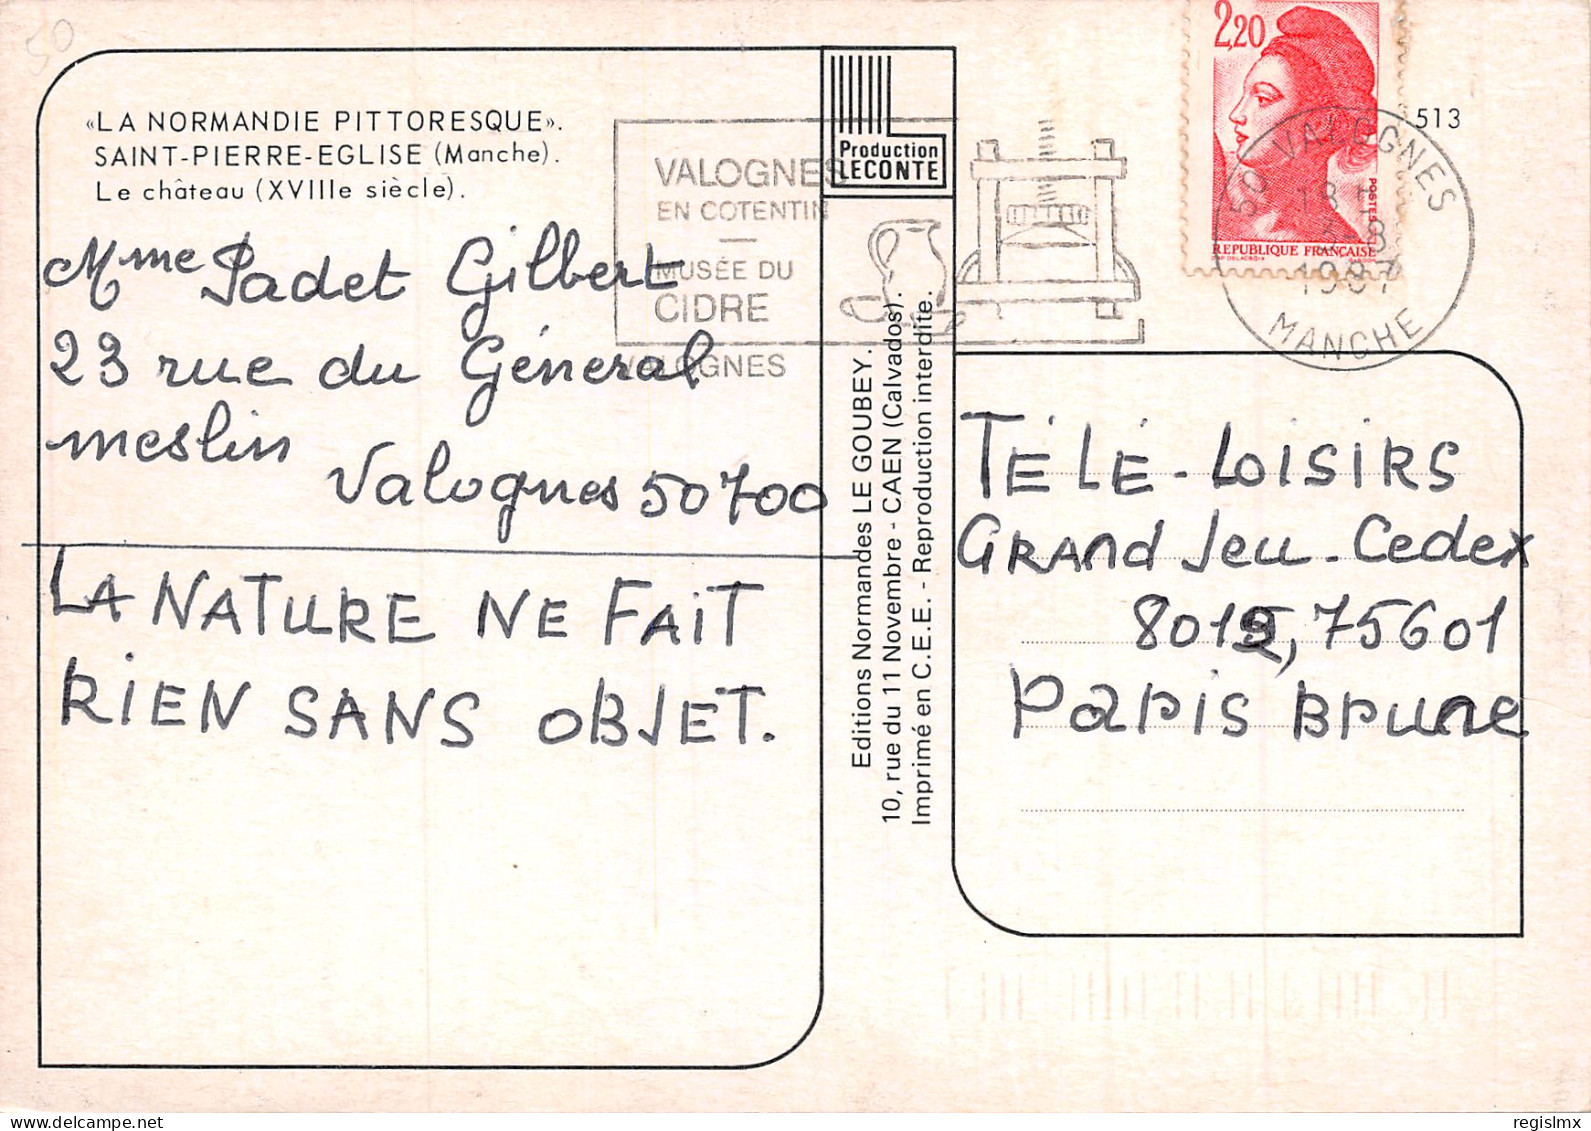 50
«LA NORMANDIE PITTORESQUE».
SAINT-PIERRE-EGLISE (Manche).
Le château (XVIIIe siècle).
Mme Padet Gilbert
23 rue du Général
meslin
Valognes 50700
LA NATURE NE FAIT
RIEN SANS OBJET.
VALOGNES
EN COTENTIN
MUSÉE DU
CIDRE
VALOGNES
Production
LECONTE
Editions Normandes LE GOUBEY.
10, rue du 11 Novembre - CAEN (Calvados).
Imprimé en C.E.E. - Reproduction interdite.
2,20
POSTES
REPUBLIQUE FRANÇAISE
513
50 VALOGNES
1987
MANCHE
TÉLÉ-LOISIRS
GRAND Jeu-Cedex
8015, 75601
PARIS BRUNE
regislmx